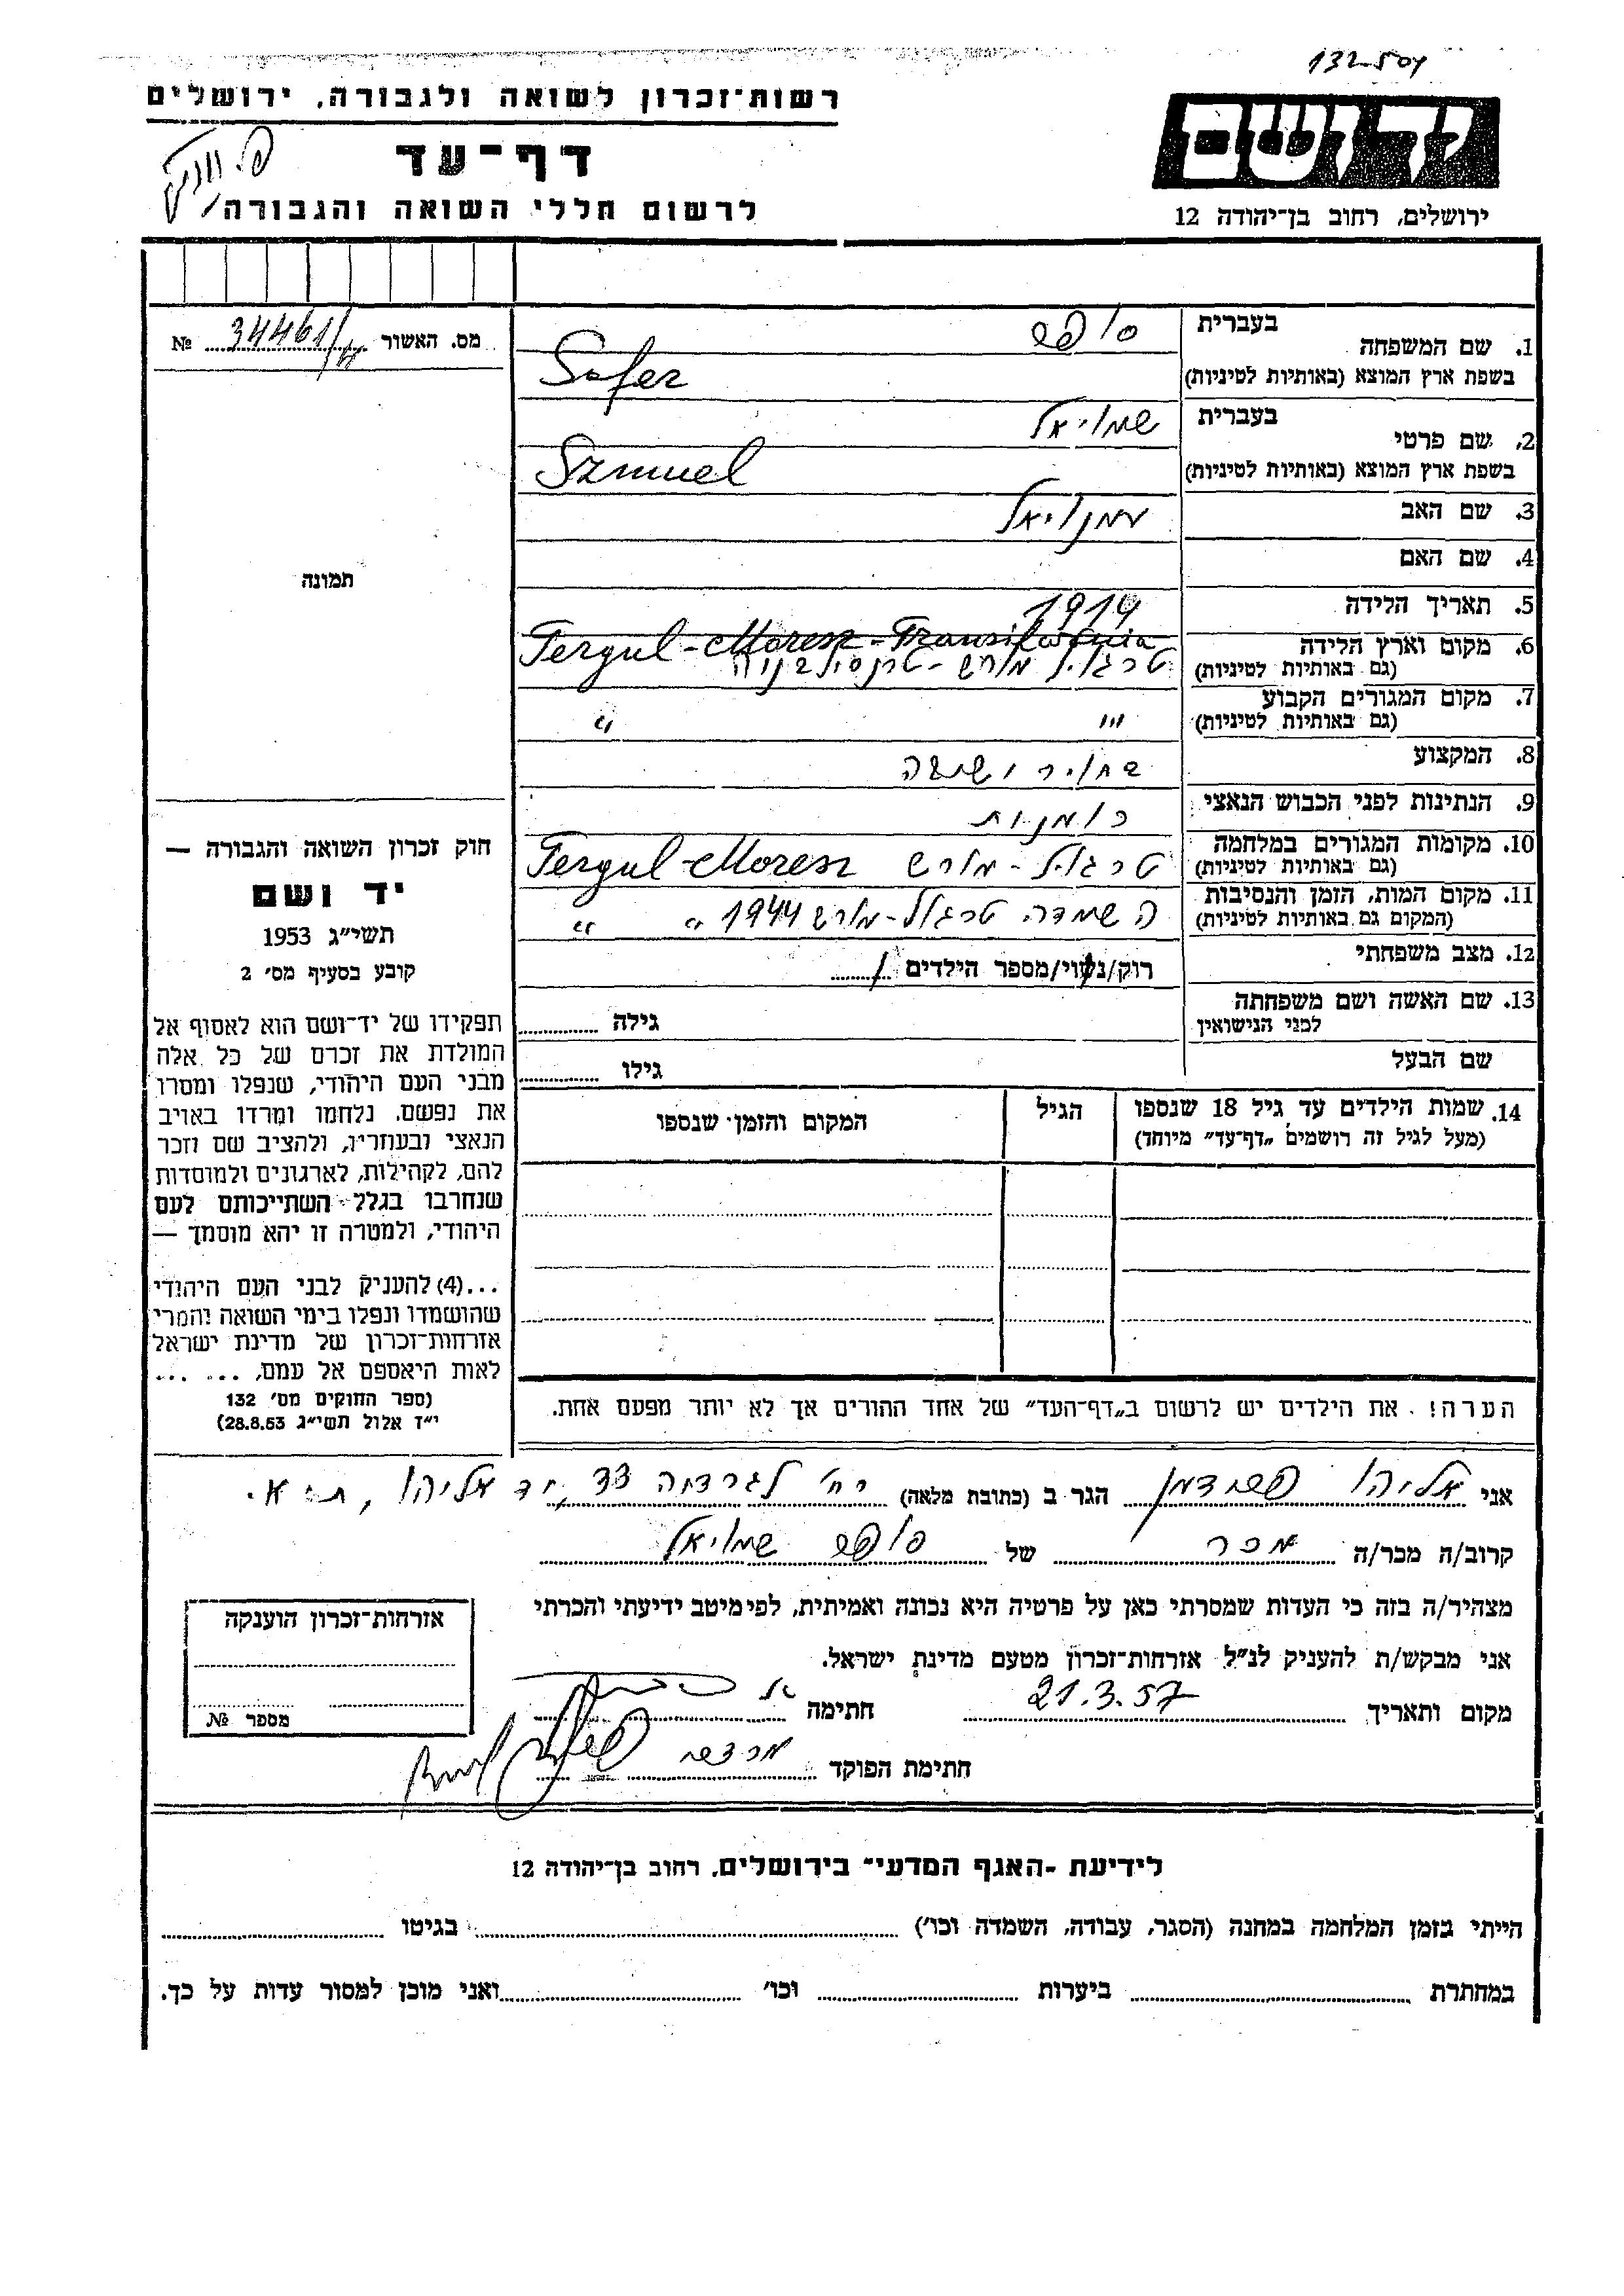 132504
רשות-זכרון לשואה ולגבורה, ירושלים
דף-עד
לרשום חללי השואה והגבורה
ידושם
ירושלים, רחוב בן-יהודה 12
מס. האשור 34461 №
תמונה
חוק זכרון השואה והגבורה —
יד ושם
תשי״ג 1953
קובע בסעיף מס׳ 2
תפקידו של יד-ושם הוא לאסוף אל
המולדת את זכרם של כל אלה
מבני העם היהודי, שנפלו ומסרו
את נפשם, נלחמו ומרדו באויב
הנאצי ובעוזריו, ולהציב שם וזכר
להם, לקהילות, לארגונים ולמוסדות
שנחרבו בגלל השתייכותם לעם
היהודי, ולמטרה זו יהא מוסמך —
...(4) להעניק לבני העם היהודי
שהושמדו ונפלו בימי השואה והמרי
אזרחות-זכרון של מדינת ישראל
לאות היאספם אל עמם, ... ...
(ספר החוקים מס׳ 132
י״ז אלול תשי״ג 28.8.53)
1. שם המשפחה בעברית סופר
בשפת ארץ המוצא (באותיות לטיניות) Sofer
2. שם פרטי בעברית שמואל
בשפת ארץ המוצא (באותיות לטיניות) Szmuel
3. שם האב
4. שם האם
5. תאריך הלידה 1914
6. מקום וארץ הלידה Tergul-Moresz-Transilwania
(גם באותיות לטיניות) טרגול מורש - טרנסילבניה
7. מקום המגורים הקבוע
(גם באותיות לטיניות) " "
8. המקצוע בחור ישיבה
9. הנתינות לפני הכבוש הנאצי רומנית
10. מקומות המגורים במלחמה
(גם באותיות לטיניות) טרגול-מורש Tergul-Moresz
11. מקום המות, הזמן והנסיבות
(המקום גם באותיות לטיניות) השמדה טרגול-מורש 1944 " "
12. מצב משפחתי רוק/נשוי/מספר הילדים
13. שם האשה ושם משפחתה
לפני הנישואין גילה
שם הבעל גילו
14. שמות הילדים עד גיל 18 שנספו הגיל המקום והזמן שנספו
(מעל לגיל זה רושמים „דף-עד״ מיוחד)
הערה! את הילדים יש לרשום ב„דף-העד״ של אחד ההורים אך לא יותר מפעם אחת.
אני אליהו הגר ב (כתובת מלאה) רח׳ לגרדיה 33, יד אליהו, ת״א.
קרוב/ה מכר/ה מכר של סופר שמואל
מצהיר/ה בזה כי העדות שמסרתי כאן על פרטיה היא נכונה ואמיתית, לפי מיטב ידיעתי והכרתי
אני מבקש/ת להעניק לנ״ל אזרחות-זכרון מטעם מדינת ישראל.
מקום ותאריך 21.3.57 חתימה
חתימת הפוקד
אזרחות-זכרון הוענקה
מספר №
לידיעת -האגף המדעי״ בירושלים, רחוב בן-יהודה 12
הייתי בזמן המלחמה במחנה (הסגר, עבודה, השמדה וכו׳) בגיטו
במחתרת ביערות וכו׳ ואני מוכן למסור עדות על כך.